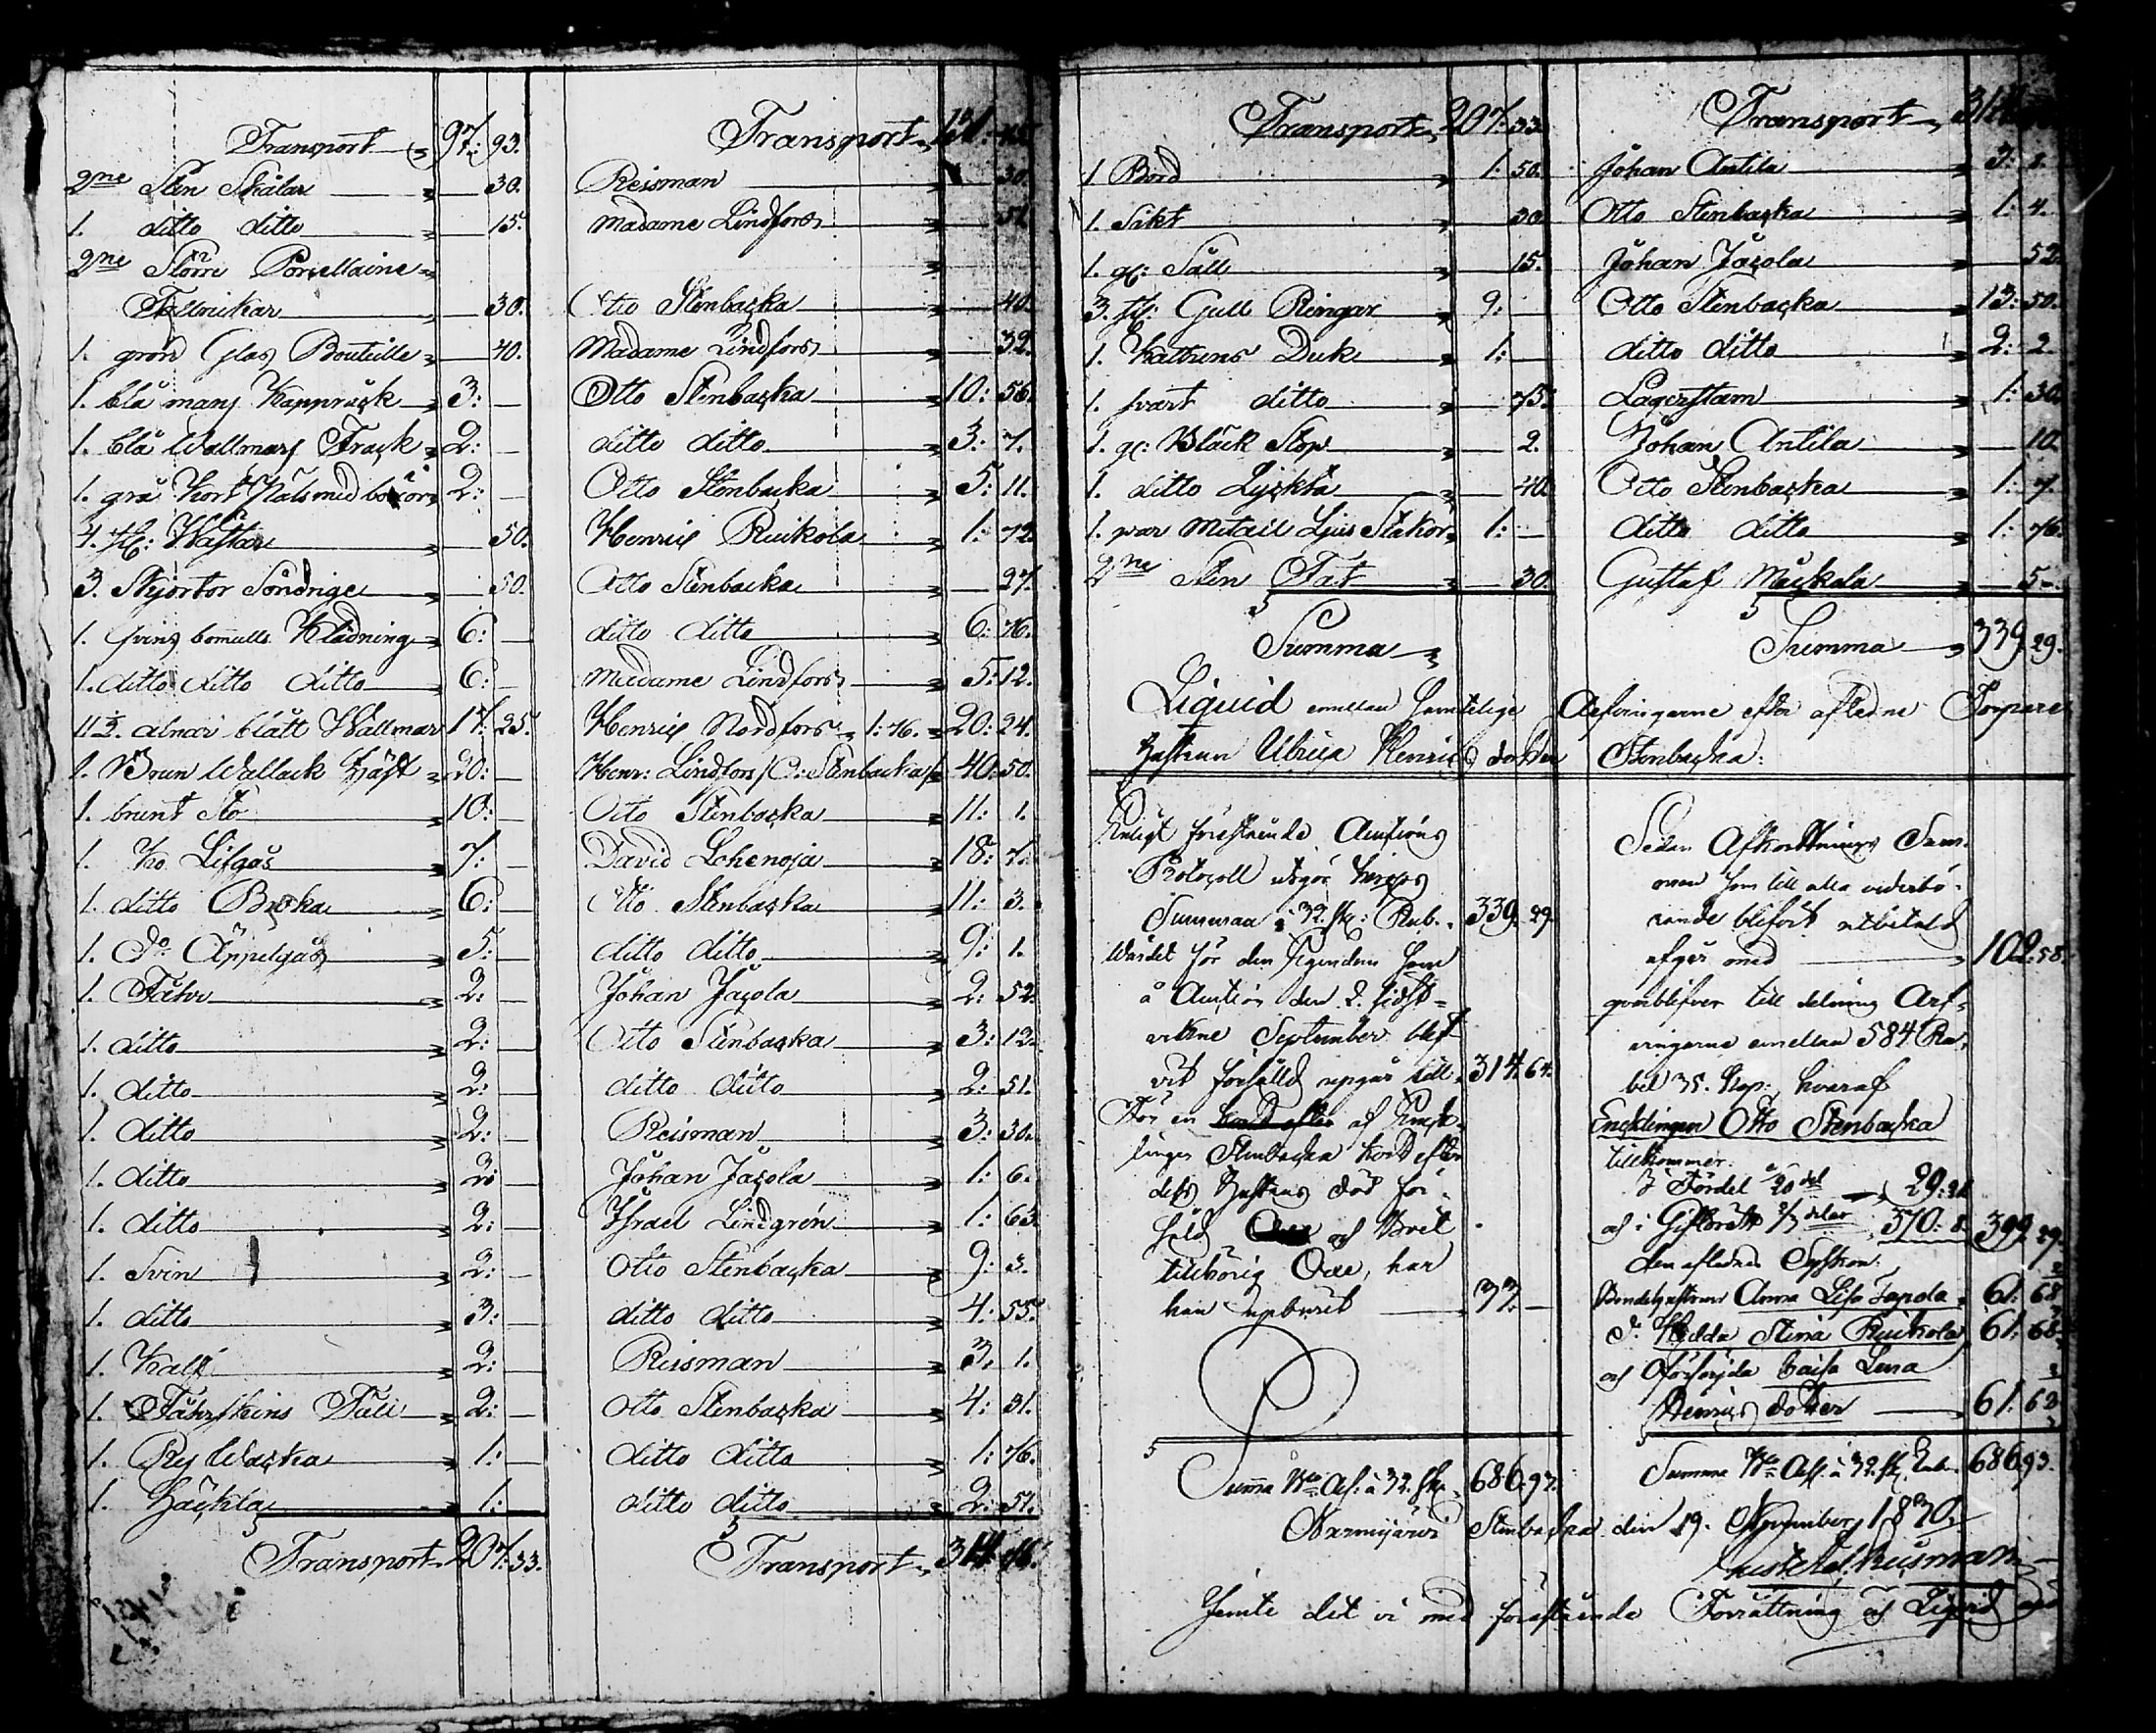 Transport 97: 93. Transport 131: 45.
2ne Sten Skålar 30. Reisman 30.
1. ditto ditto 15. Madame Lindfors 51.
2ne Större Porcellaine
Tallrickar 30. Otto Stenbacka 40.
1. grön Glas Bouteille 40. Madame Lindfors 32.
1. blå mans Kappråck 3: — Otto Stenbacka 10: 56.
1. blå Wallmans Frack 2: — ditto ditto 3: 7.
1. grå Kort 2: — Otto Stenbacka 5: 11.
4. st: Wästar 50. Henric Ruikola 1: 72.
3. Skjortor Söndrige 50. Otto Stenbacka 27.
1. bomulls Klädning 6: — ditto ditto 6: 76.
1. ditto ditto ditto 6: — Madame Lindfors 5: 12.
11 1/2. alnar blått Wallmar 17: 25. Henric Nordfors 1: 76. 20: 24.
1. Brun Wallack Häst 20: — Henr: Lindfors /O: Stenbacka/ 40: 50.
1. brunt Sto 10: — Otto Stenbacka 11: 1.
1. Ko Lifgås 7: — David Lohenoja 18: 7.
1. ditto Bruka 6: — Otto Stenbacka 11: 3.
1. Do Äppelgås 5: — ditto ditto 9: 1.
1. Fåhr 2: — Johan Jacola 2: 52.
1. ditto 2: — Otto Stenbacka 3: 12.
1. ditto 2: — ditto ditto 2: 51.
1. ditto 2: — Reisman 3: 30.
1. ditto 2: Johan Jacola 1: 6.
1. ditto 2: — Israel Lindgrén 1: 63.
1. Svin 2: — Otto Stenbacka 9: 3.
1. ditto 3: — ditto ditto 4: 55.
1. Kalf 2: — Reisman 3. 1.
1. Fåhrskins Fäll 2: — Otto Stenbacka 4: 31.
1. Rys 1: — ditto ditto 1: 76.
1. Häckla 1: ditto ditto 2: 51.
Transport 207: 33. Transport 314: 76.
Transport 207: 33. Transport
1 Bord 1: 50. Johan Antila 3: 1.
1. Sikt 30. Otto Stenbacka 1: 4.
1. gl: Såll 15. Johan Jacola 52.
3. st: Gull Ringar 9: — Otto Stenbacka 13: 50.
1. Kattuns Duk 1: — ditto ditto 2: 2.
1. svart ditto 75. Lagerstam 1: 30.
1. gl: Bläck Stop 2. Johan Antila 10.
1. ditto Lyckta 40. Otto Stenbacka 1: 7.
1. par Metall Ljus Stakar 1: — ditto ditto 1: 76.
2ne Sten Fat 30. Gustaf Mäckälä 5.
Summa Summa 339. 29.
Liquid emellan samtelige Arfvingarne efter aflidne Torpare
Hustrun Ulrica Henrics dotter Stenbacka.
Enligt förestående Auctions
Protocoll utgör Inrops
Summan à 32. sk: Rub. 339. 29.
Wärdet för den Egendom som
å Auction den 2. sidst-
vikne September blef-
vit försåld upgår till 314. 64.
För en af Enck-
lingen Stenbacka kort efter
dess Hustrus död för-
såld och Boet
tillhörig Oxe, har
han upburit 33. —
Summa Bco Ass. à 32. sk. 686. 93.
Sedan Afkortnings Sum-
man som till alla vederbö-
rande blifvit utbetald
afgår med 102. 58.
qvarblifver till delning Arf-
vingarne emellan 584 Ru-
bel 35. Kop: hvaraf
Encklingen Otto Stenbacka
tillkommer.
I Fördel 1/20 del 29. 21
och i Giftorätt 2/3 delar 370. 8. 399. 29.
den aflednas Syskon.
Bondehustrun Anna Lisa Japola 61. 68
Do Hedda Stina Ruikola 61. 68
och Caisa Lena
Henrics dotter 61. 68
Summa Bco Ass. à 32. sk. Rub. 686. 93.
Stenbacka den 19. November 1830.
Reisman
Jemte det vi med förestående Förrättning och Liquid